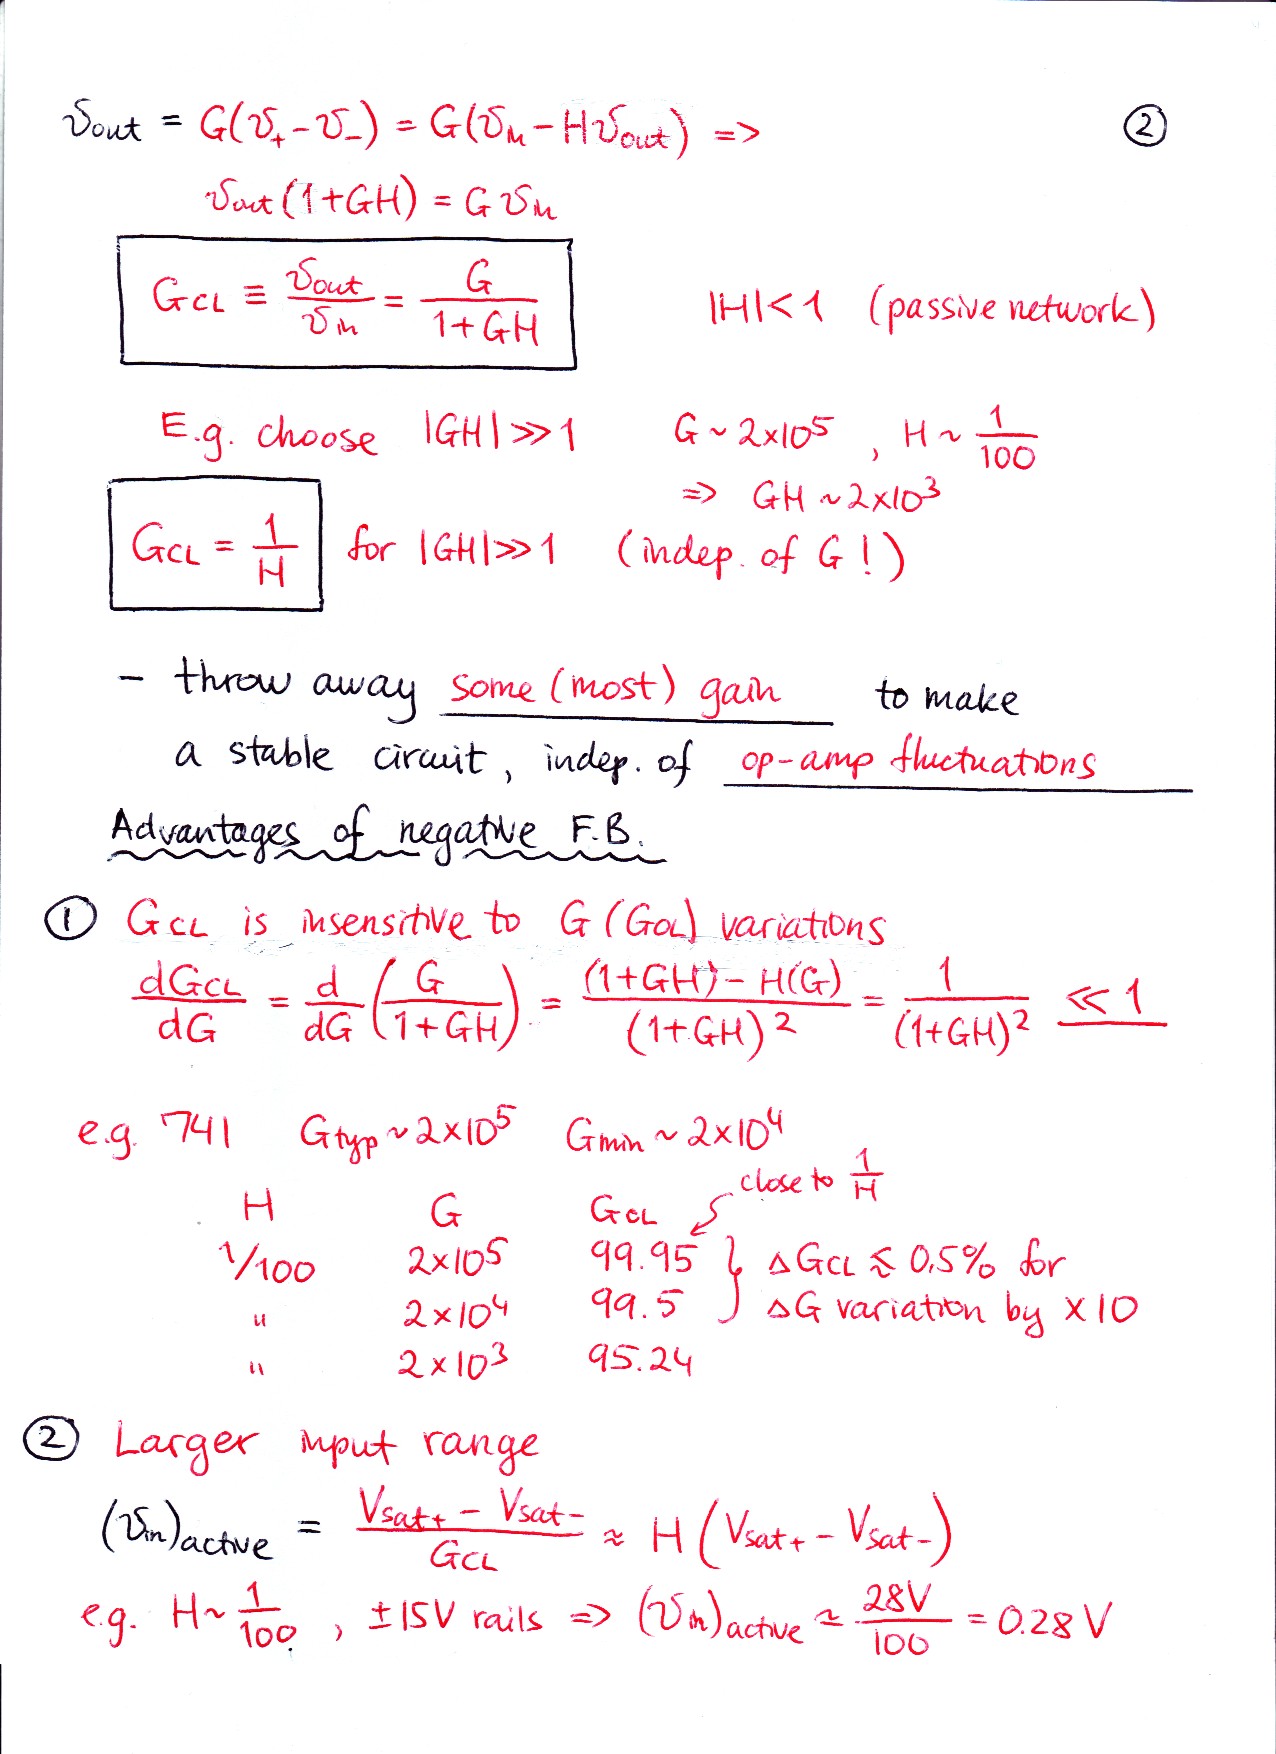 ②
v_out = G(v₊ - v₋) = G(v_in - Hv_out) =>
v_out(1+GH) = G v_in
G_CL ≡ v_out/v_in = G/(1+GH)    |H|<1 (passive network)
E.g. choose |GH| ≫ 1    G ~ 2×10⁵, H ~ 1/100
=> GH ~ 2×10³
G_CL = 1/H for |GH| ≫ 1 (indep. of G!)
- throw away some (most) gain to make
a stable circuit, indep. of op-amp fluctuations
Advantages of negative F.B.
① G_CL is insensitive to G (G_OL) variations
dG_CL/dG = d/dG (G/(1+GH)) = ((1+GH) - H(G))/(1+GH)² = 1/(1+GH)² ≪ 1
e.g. 741 G_typ ~ 2×10⁵ G_min ~ 2×10⁴
close to 1/H
H G G_CL
1/100 2×10⁵ 99.95 } ΔG_CL ≲ 0.5% for
" 2×10⁴ 99.5 ΔG variation by ×10
" 2×10³ 95.24
② Larger input range
(v_in)_active = (V_sat+ - V_sat-)/G_CL ≈ H (V_sat+ - V_sat-)
e.g. H ~ 1/100, ±15V rails => (v_in)_active ≈ 28V/100 = 0.28 V